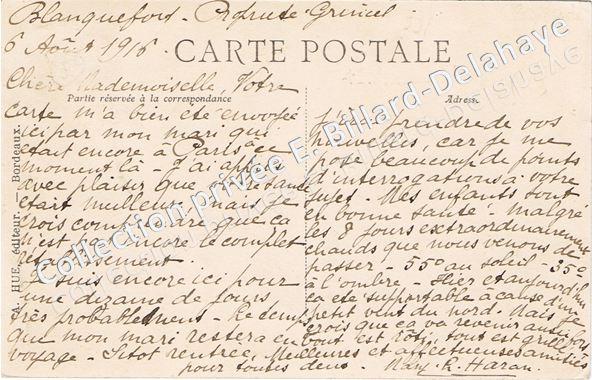 Blanquefort - Propriété Grincel
6 Août 1916
CARTE POSTALE
Chère Mademoiselle, Votre
Partie réservée à la correspondance
carte m'a bien été envoyée
ici par mon mari qui
était encore à Paris à ce
moment là - J'ai appris
avec plaisir que votre santé
était meilleure mais je
crois comprendre que ça
n'est pas encore le complet
rétablissement.
Je suis encore ici pour
une dizaine de jours
très probablement - le temps
que mon mari restera en
voyage - Sitôt rentrée,
Adresse
j'irai prendre de vos
nouvelles, car je me
pose beaucoup de points
d'interrogations à votre
sujet - Mes enfants sont
en bonne santé - malgré
les 8 jours extraordinairement
chauds que nous venons de
passer - 55° au soleil - 35°
à l'ombre - Hier et aujourd'hui
ça été supportable à cause d'un
petit vent du nord. Mais je
crois que ça va revenir aussi fort
tout est rôti, tout est grillé
Meilleures et affectueuses amitiés
pour toutes deux. R. Haran
HUE, éditeur. - Bordeaux.
Collection privée E. Billard-Delahaye